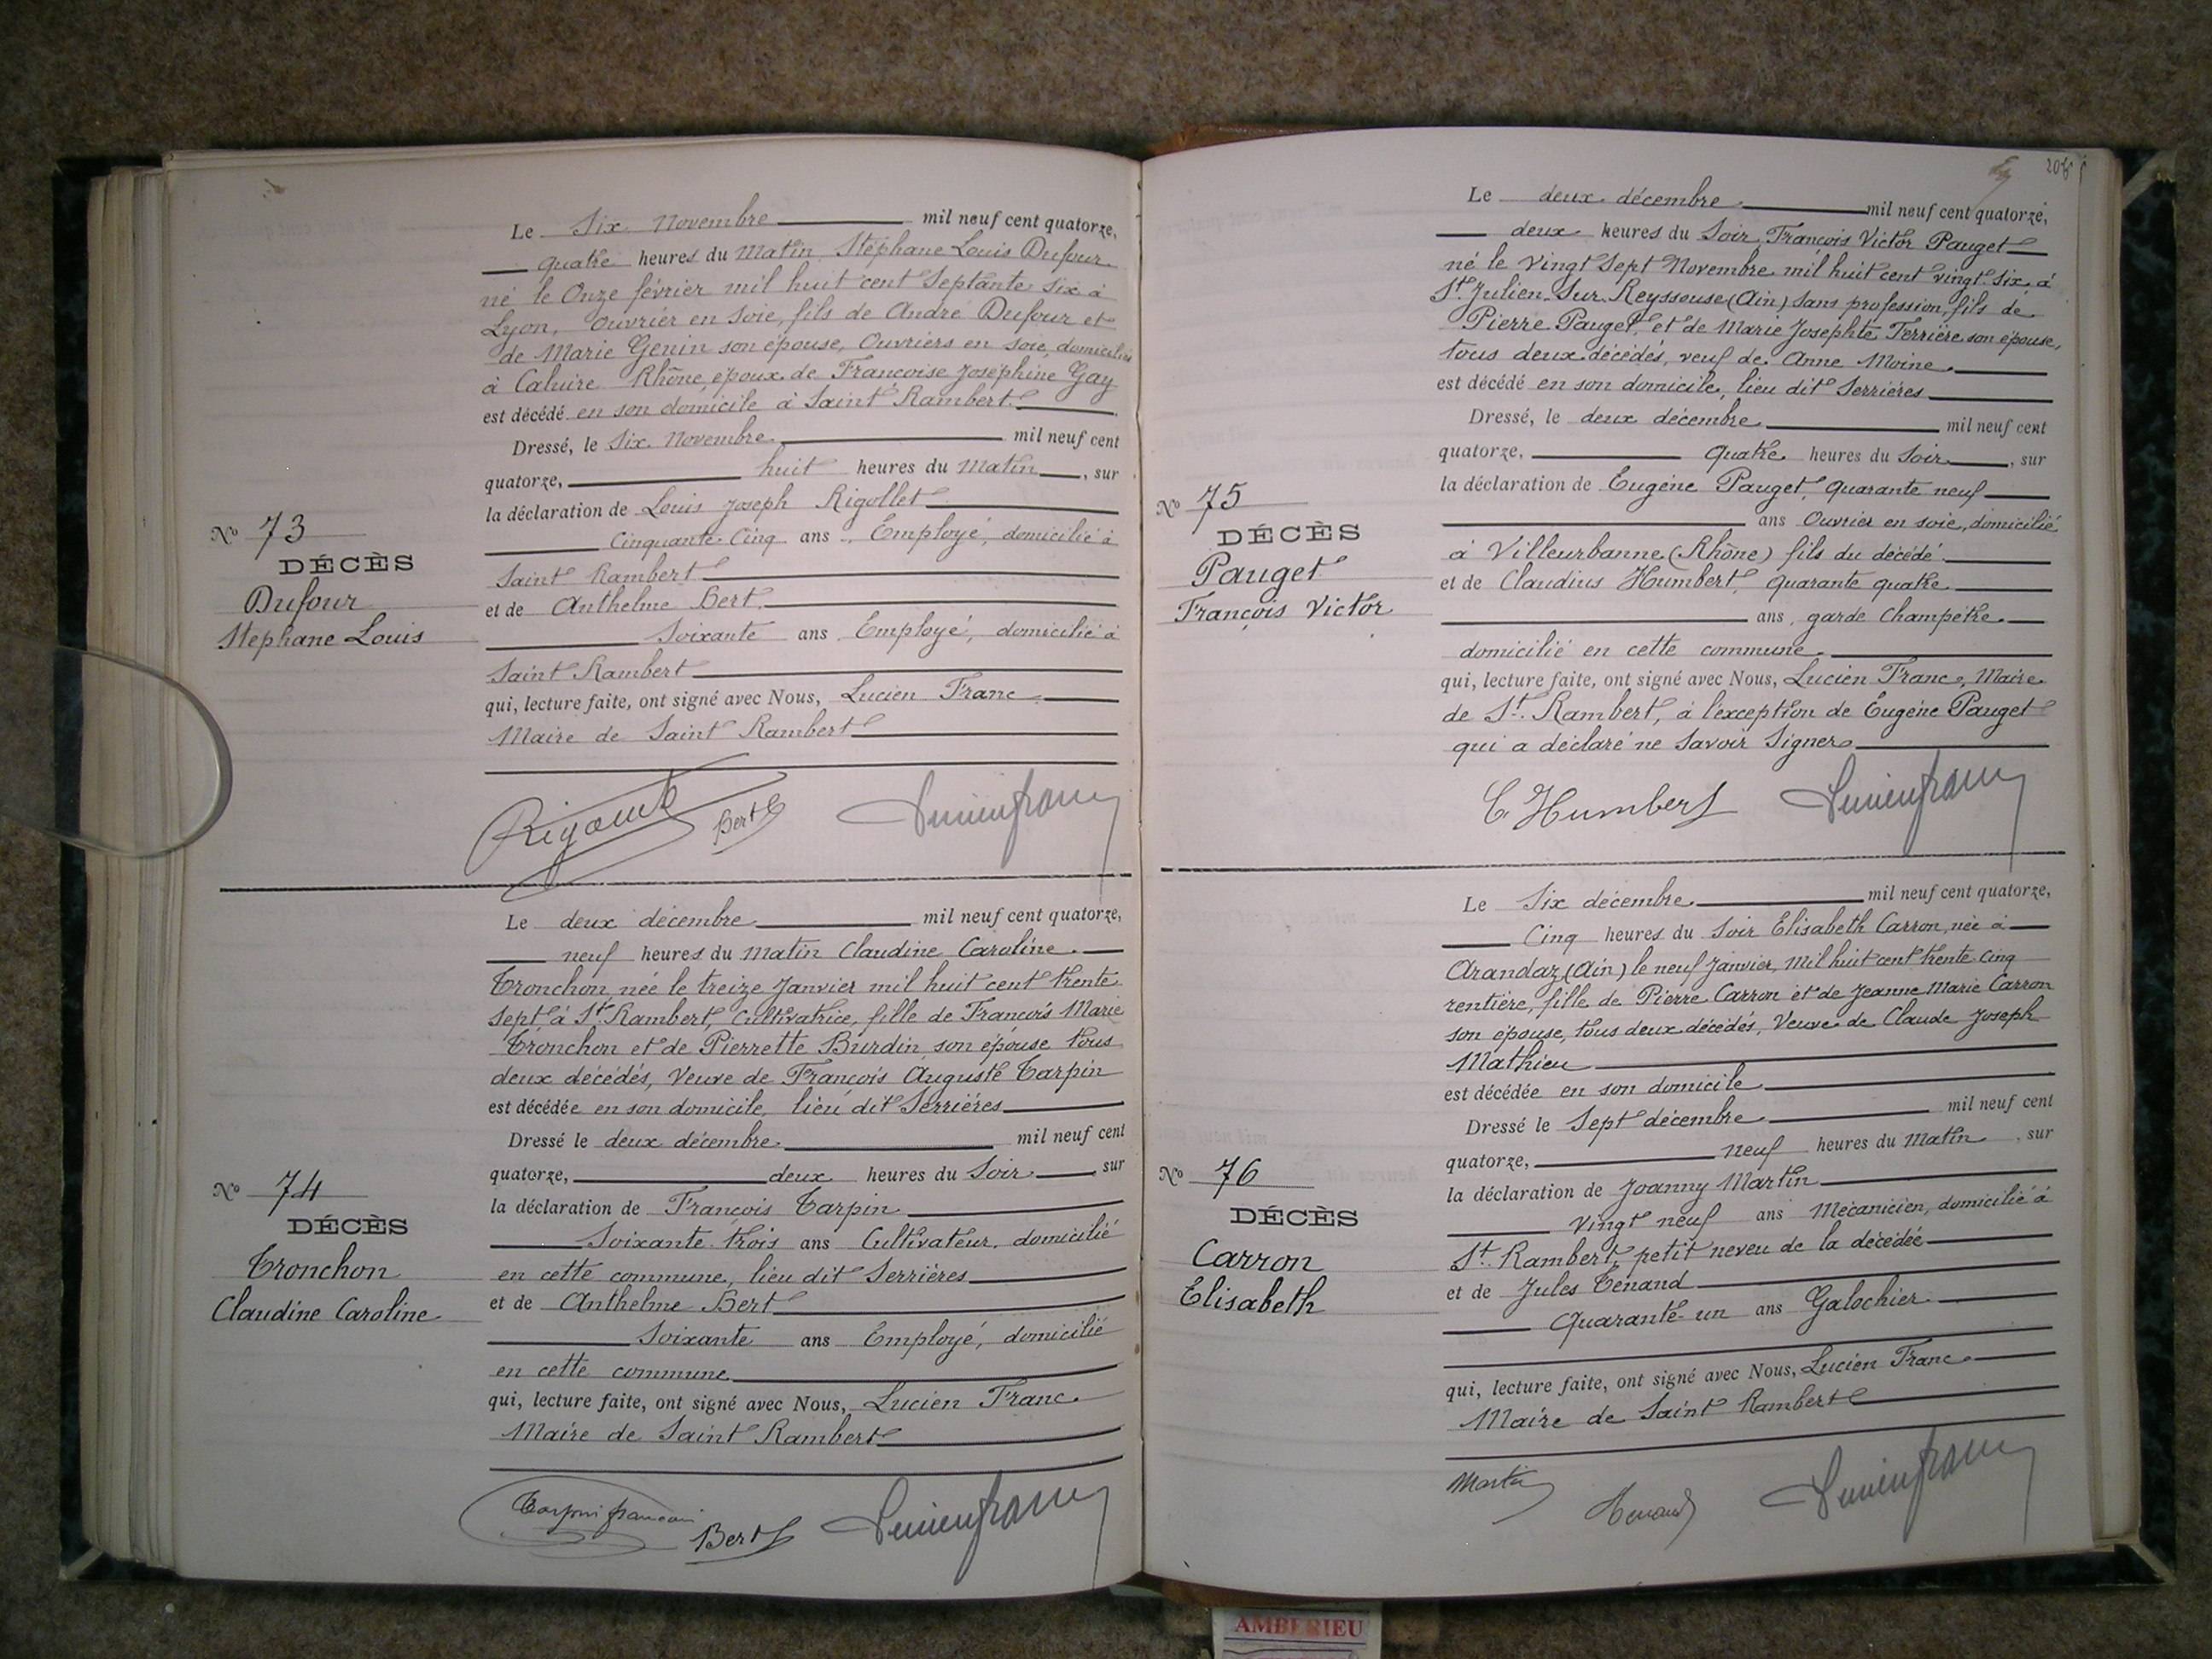 Le Six Novembre mil neuf cent quatorze,
quatre heures du Matin Stéphane Louis Dufour
né le Onze février mil huit cent Septante Six à
Lyon, Ouvrier en Soie, fils de André Dufour et
de Marie Genin son épouse, Ouvriers en soie, domiciliés
à Caluire Rhône, époux de Françoise Joséphine Gay
est décédé en son domicile à Saint Rambert.
Dressé, le Six Novembre mil neuf cent
quatorze, huit heures du Matin, sur
la déclaration de Louis Joseph Rigollet
Cinquante Cinq ans, Employé, domicilié à
Saint Rambert
et de Anthelme Bert
Soixante ans Employé, domicilié à
Saint Rambert
qui, lecture faite, ont signé avec Nous, Lucien Franc
Maire de Saint Rambert
No 73
DÉCÈS
Dufour
Stephane Louis
Bert
Lucien franc
Le deux décembre mil neuf cent quatorze,
neuf heures du Matin Claudine Caroline
Tronchon née le treize Janvier mil huit cent trente
Sept à St. Rambert, Cultivatrice, fille de François Marie
Tronchon et de Pierrette Burdin son épouse tous
deux décédés, Veuve de François Auguste Tarpin
est décédée en son domicile, lieu dit Serrières
Dressé le deux décembre mil neuf cent
quatorze, deux heures du Soir, sur
la déclaration de François Tarpin
Soixante trois ans Cultivateur, domicilié
en cette commune, lieu dit Serrières
et de Anthelme Bert
Soixante ans Employé, domicilié
en cette commune
qui, lecture faite, ont signé avec Nous, Lucien Franc
Maire de Saint Rambert
No 74
DÉCÈS
Tronchon
Claudine Caroline
Tarpin francois
Bert
Lucien franc
Le deux décembre mil neuf cent quatorze,
deux heures du Soir, François Victor Pauget
né le Vingt Sept Novembre mil huit cent vingt Six, à
St. Julien Sur Reyssouse (Ain) Sans profession, fils de
Pierre Pauget, et de Marie Josephte Ferrière son épouse,
tous deux décédés, veuf de Anne Moine
est décédé en son domicile, lieu dit Serrières
Dressé, le deux décembre mil neuf cent
quatorze, Quatre heures du Soir, sur
la déclaration de Eugène Pauget, Quarante neuf
ans Ouvrier en soie, domicilié
à Villeurbanne (Rhône) fils du décédé
et de Claudius Humbert, Quarante quatre
ans, garde Champêtre
domicilié en cette commune
qui, lecture faite, ont signé avec Nous, Lucien Franc, Maire
de St. Rambert, à l'exception de Eugène Pauget
qui a déclaré ne Savoir Signer
No 75
DÉCÈS
Pauget
François Victor
C. Humbert
Lucien franc
Le Six décembre mil neuf cent quatorze,
Cinq heures du Soir Elisabeth Carron, née à
Arandaz (Ain) le neuf Janvier, mil huit cent trente cinq
rentière, fille de Pierre Carron et de Jeanne Marie Carron
son épouse, tous deux décédés, Veuve de Claude Joseph
Mathieu
est décédée en son domicile
Dressé le Sept décembre mil neuf cent
quatorze, neuf heures du Matin, sur
la déclaration de Joanny Martin
Vingt neuf ans Mécanicien, domicilié à
St. Rambert, petit neveu de la décédée
et de Jules Tenand
Quarante un ans Galochier
qui, lecture faite, ont signé avec Nous, Lucien Franc
Maire de Saint Rambert
No 76
DÉCÈS
Carron
Elisabeth
Martin
Tenand
Lucien franc
AMBERIEU